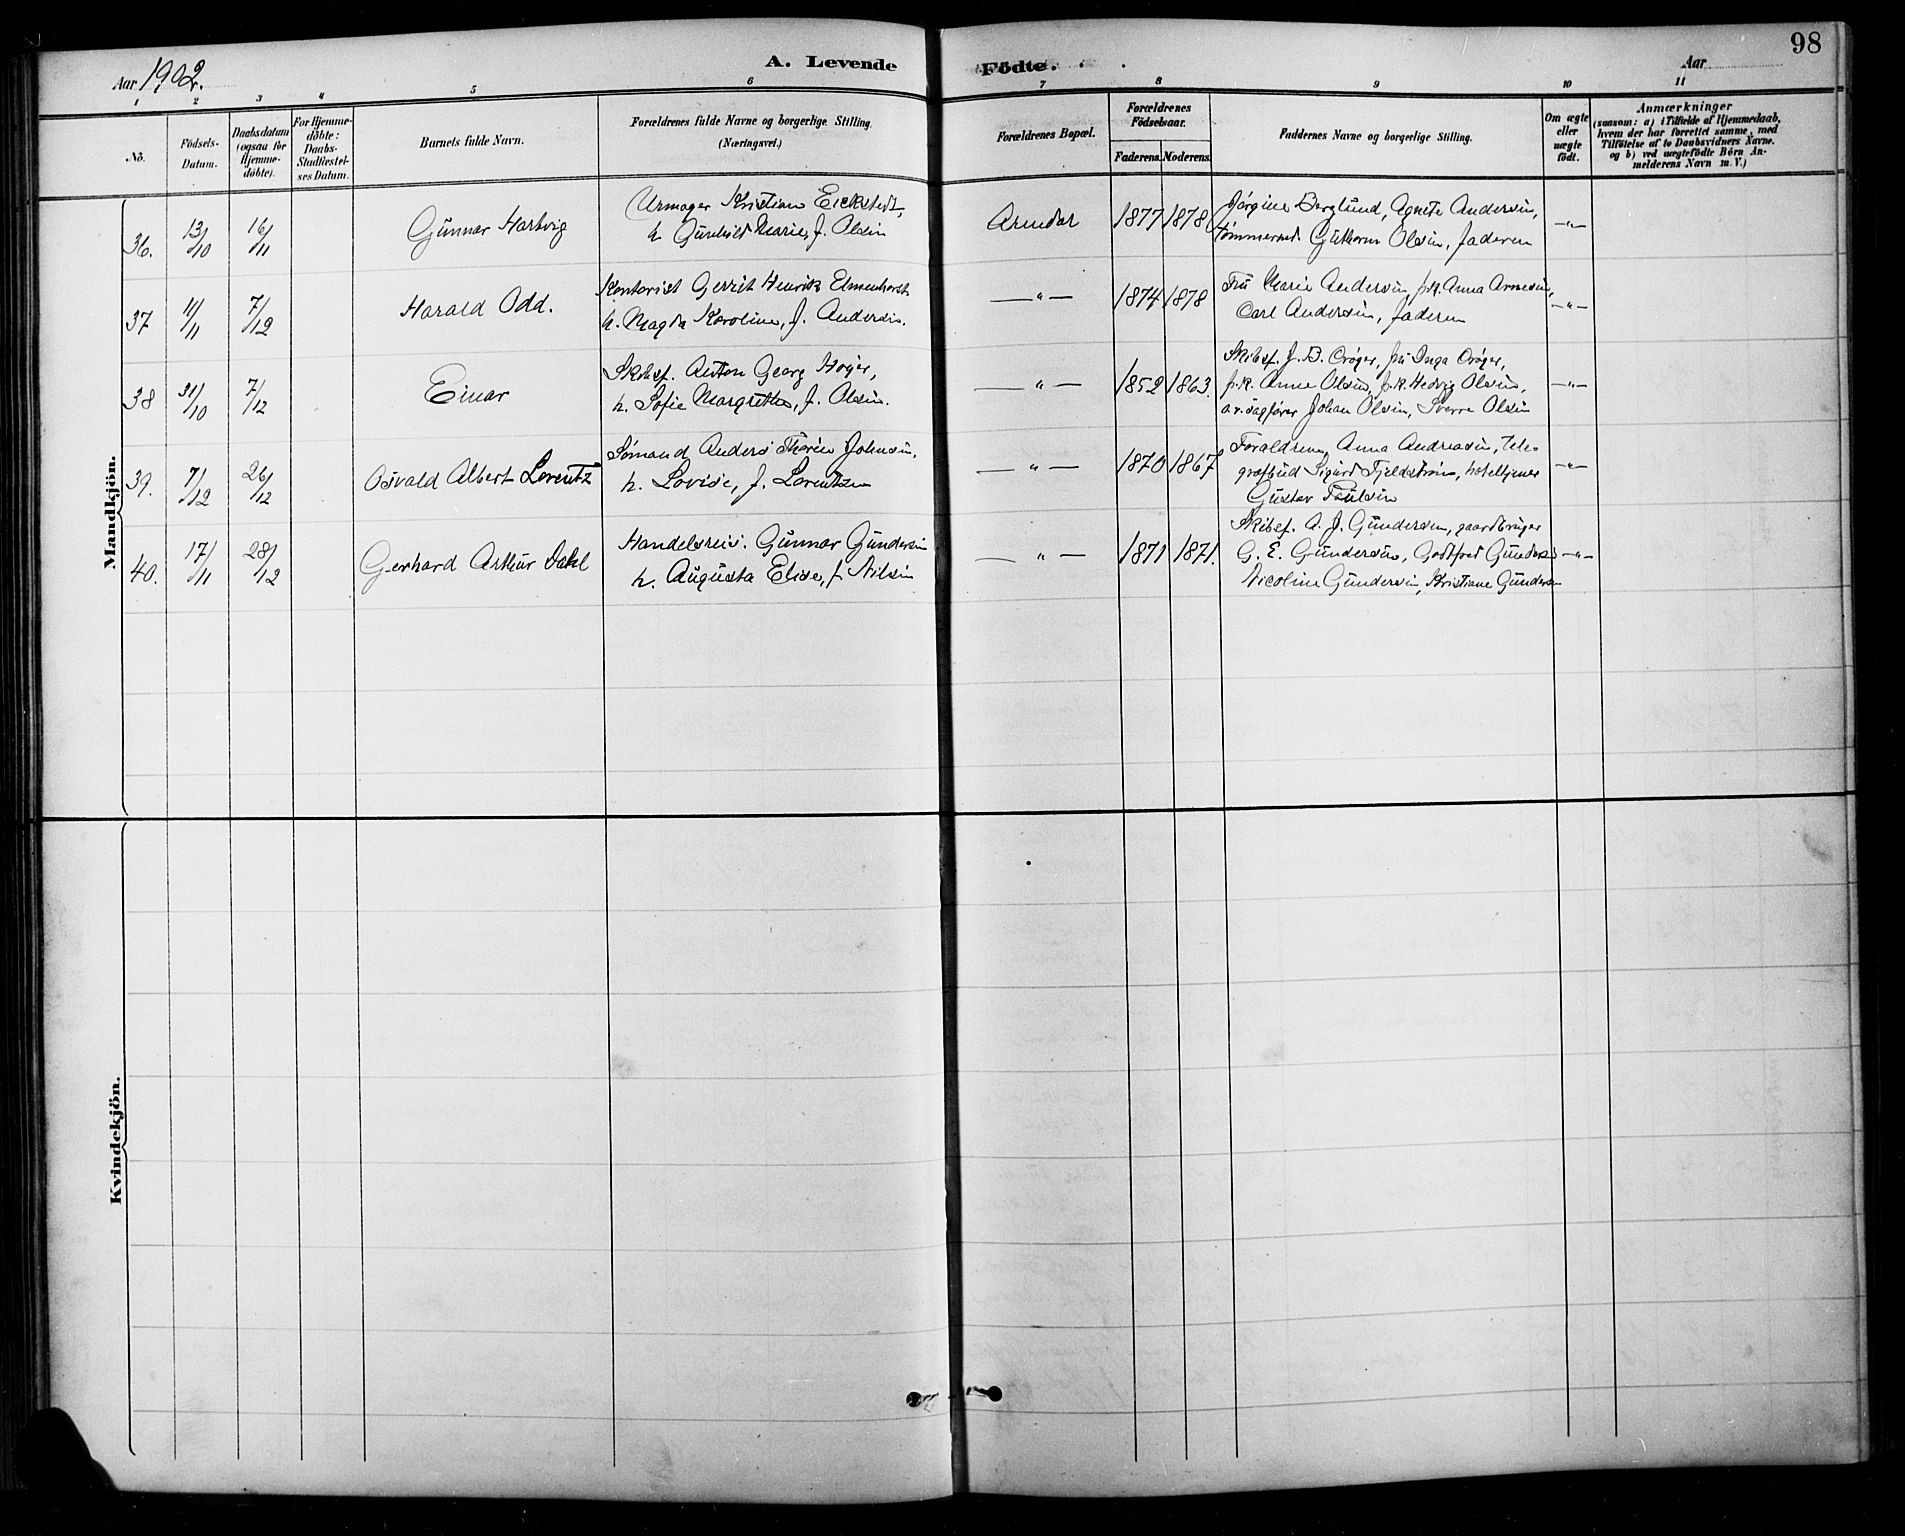 98
Aar 1902.
A. Levende
Födte.
Aar
1
2
3
4
5
6
7
8
9
10
11
No.
Födsels-
Datum.
Daabsdatum
(ogsaa for
Hjemme-
döbte).
For Hjemme-
döbte:
Daabs-
Stadfæstel-
ses Datum.
Barnets fulde Navn.
Forældrenes fulde Navne og borgerlige Stilling.
(Næringsvei.)
Forældrenes Bopæl.
Forældrenes
Födselsaar.
Faderens.
Moderens.
Faddernes Navne og borgerlige Stilling.
Om ægte
eller
uægte
födt.
Anmærkninger
(saasom: a) i Tilfælde af Hjemmedaab,
hvem der har forrettet samme, med
Tilföielse af to Daabsvidners Navne.
og b) ved uægtefödte Börn An-
melderens Navn m. V.)
Mandkjön.
36. 13/10 16/11 Gunnar Hartvig
Urmager Kristian Eickstedt,
h. Gunhild Marie, f. Olsen
Arendal 1877 1878
Jørgine Berglund, Agnete Andersen,
tømmermd. Guthorm Olsen, faderen
—"—
37 11/11 7/12 Harald Odd.
Kontorist Gerrit Henrik Elmenhorst
h. Magda Karoline, f. Andersen.
—"— 1874 1878
Fru Marie Andersen, frk. Anna Arnesen,
Carl Andersen, faderen
—"—
38 31/10 7/12 Einar
Skibsf. Anton Georg Høyer,
h. Sofie Margrethe, f. Olsen.
—"— 1852 1863.
Skibsf. J. B. Crøger, fru Inga Crøger,
frk. Anne Olsen, frk. Hedvig Olsen,
o.r.sagfører Johan Olsen, Sverre Olsen
—"—
39. 7/12 26/12 Osvald Albert Lorentz
Sømand Anders Thorin Johnsen,
h. Lovise, f. Lorentzen
—"— 1870 1867
Forældrene, Anna Andreasen, tele-
grafbud Sigurd Fjeldstrøm, hoteltjener
Gustav Paulsen
—"—
40. 17/11 28/12 Gerhard Arthur Dahl
Handelsreis. Gunnar Gundersen
h. Augusta Elise, f. Nilsen
—"— 1871 1871.
Skibsf. A. J. Gundersen, gaardbruger
G. E. Gundersen, Godtfred Gunders.
Nicoline Gundersen, Kristiane Gundersen
—"—
Kvindekjön.